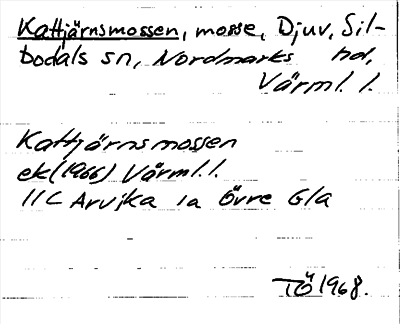 Kattjärnsmossen, mosse, Djuv, Sil-
bodals sn, Nordmarks hd,
Värml. l.
Kattjärnsmossen
ek (1966) Värml. l.
11C Arvika 1a Övre Gla
TÖ 1968.